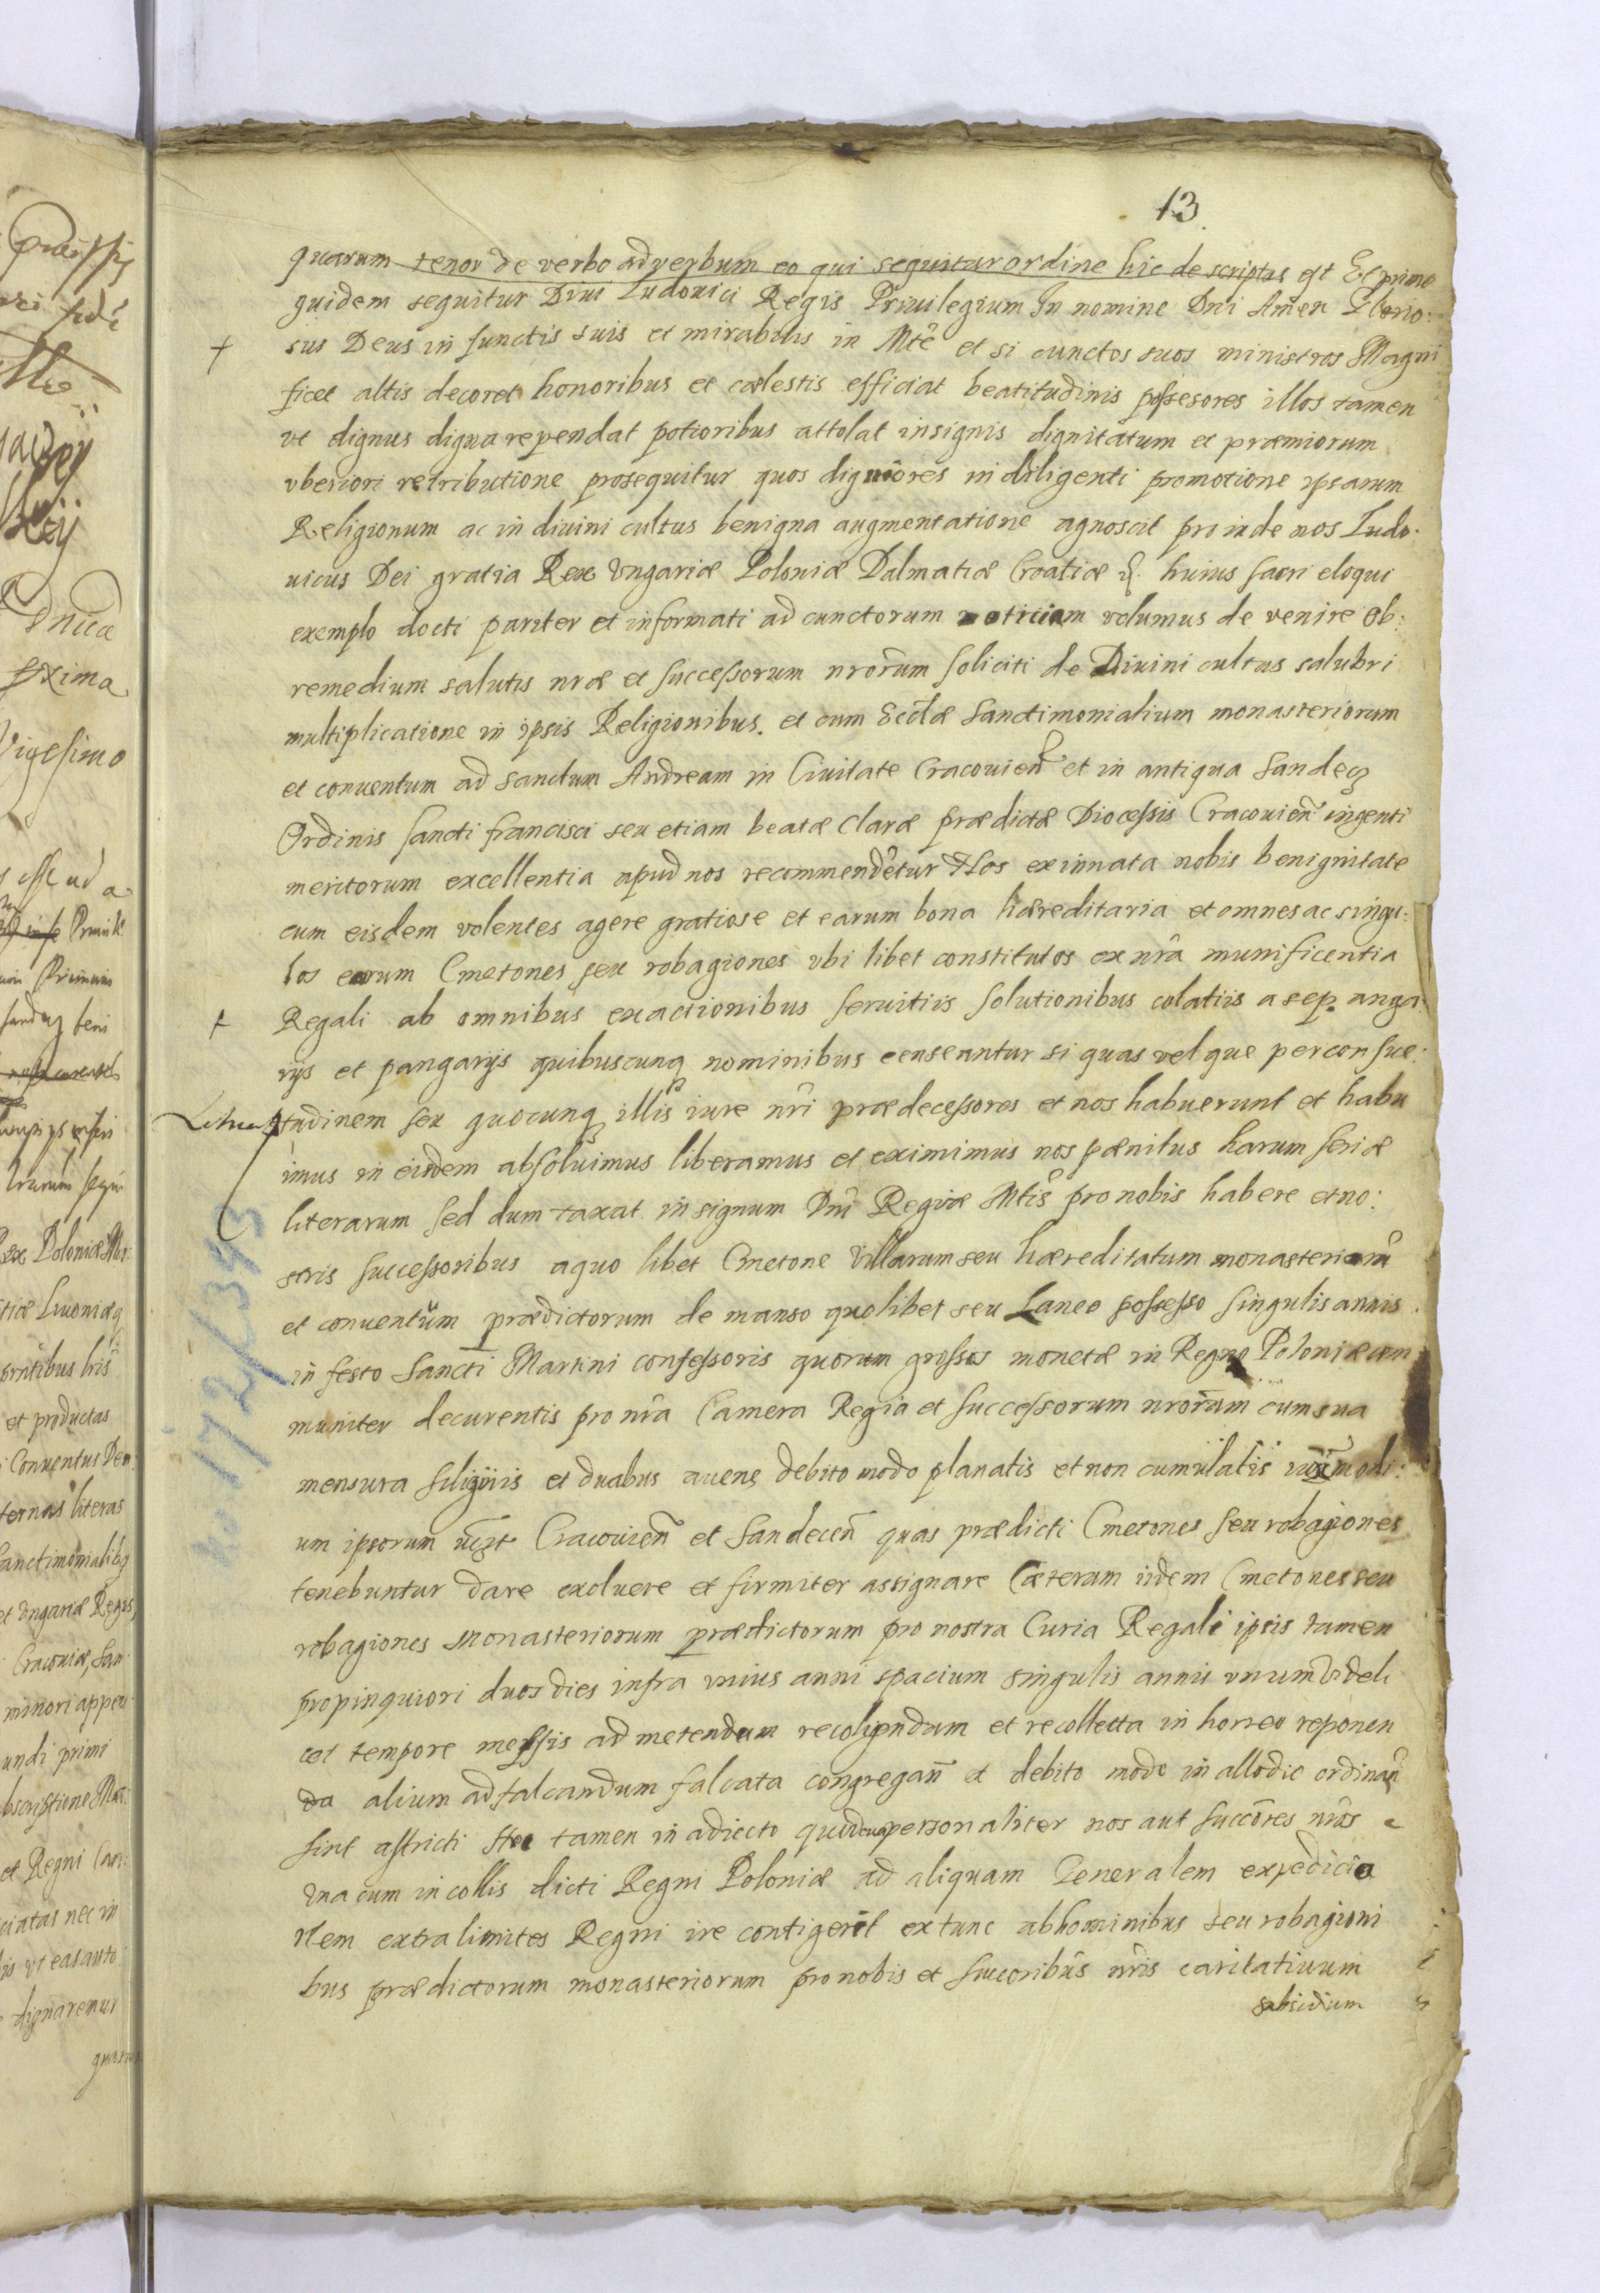 13.
quarum tenor de verbo ad verbum eo qui sequitur ordine hic descriptus est Et primo
quidem sequitur Divi Ludovici Regis Privilegium In nomine Dni Amen Glorio:
sus Deus in sanctis suis et mirabilis in Mte et si cunctos suos ministros Magni
ficet altis decoret honoribus et cælestis efficiat beatitudinis possesores illos tamen
ut dignus digna rependat potioribus attolat insignis dignitatum et præmiorum
uberiori retributione prosequitur quos digniores in diligenti promotione ipsarum
Religionum ac in divini cultus benigna augmentatione agnoscit proinde nos Ludo:
uicus Dei gratia Rex Ungariæ Poloniæ Dalmatiæ Croatiæ &. huius sacri eloqui
exemplo docti pariter et informati ad cunctorum noticiam volumus de venire Ob:
remedium salutis nræ et successorum nrorum soliciti de Divini cultus salubri
multiplicatione in ipsis Religionibus. et cum Ecclæ Sanctimonialium monasteriorum
et conventum ad sanctum Andream in Civitate Cracovien et in antiqua Sandecz
Ordinis sancti francisci seu etiam beatæ Claræ prædictæ Diocessis Cracovien ingenti
meritorum excellentia apud nos recommendetur Nos ex innata nobis benignitate
cum eisdem volentes agere gratiose et earum bona hæreditaria et omnes ac singu:
los earum Cmetones seu robagiones ubi libet constitutos ex nra munificentia
Regali ab omnibus exactionibus servitiis solutionibus colatiis a sep. anga:
rijs et pangarijs quibuscunq nominibus censeantur si quas vel que per consue:
tudinem seu quocunq illis iure nri prædecessores et nos habuerunt et habu
imus in eisdem absolvimus liberamus et eximimus nos pænitus harum seriæ
literarum sed dum taxat in signum Dni Regiæ Mtis pro nobis habere et no:
stris successoribus a quo libet Cmetone Villarum seu hæreditatum monasteriorum
et conventum prædictorum de manso quolibet seu Laneo possesso singulis annis
in festo Sancti Martini confessoris quorum grossos monetæ in Regno Poloniæ com
muniter decurentis pro nra Camera Regia et successorum nrorum cum sua
mensura siliginis et duabus avenę debito modo planatis et non cumulatis modi:
um ipsorum uczt Cracovien et Sandecen quas prædicti Cmetones seu robagiones
tenebuntur dare exoluere et firmiter assignare Cæterum iidem Cmetones seu
robagiones Monasteriorum prædictorum pro nostra Curia Regali ipsis tamen
propinquiori duos dies infra unius anni spacium singulis annis unum videli
cet tempore messis ad metendum recoligendum et recollecta in horreo reponen
da alium ad falcandum falcata congregan et debito modo in allodio ordinan
sint astricti Hoc tamen in adiecto personaliter nos aut succores nros
Una cum incollis dicti Regni Poloniæ ad aliquam Generalem expedicio
nem extra limites Regni ire contigerit extunc ab hominibus seu robagioni
bus prædictorum monasteriorum pro nobis et succoribus nris caritativum
subsidium
No 172/393